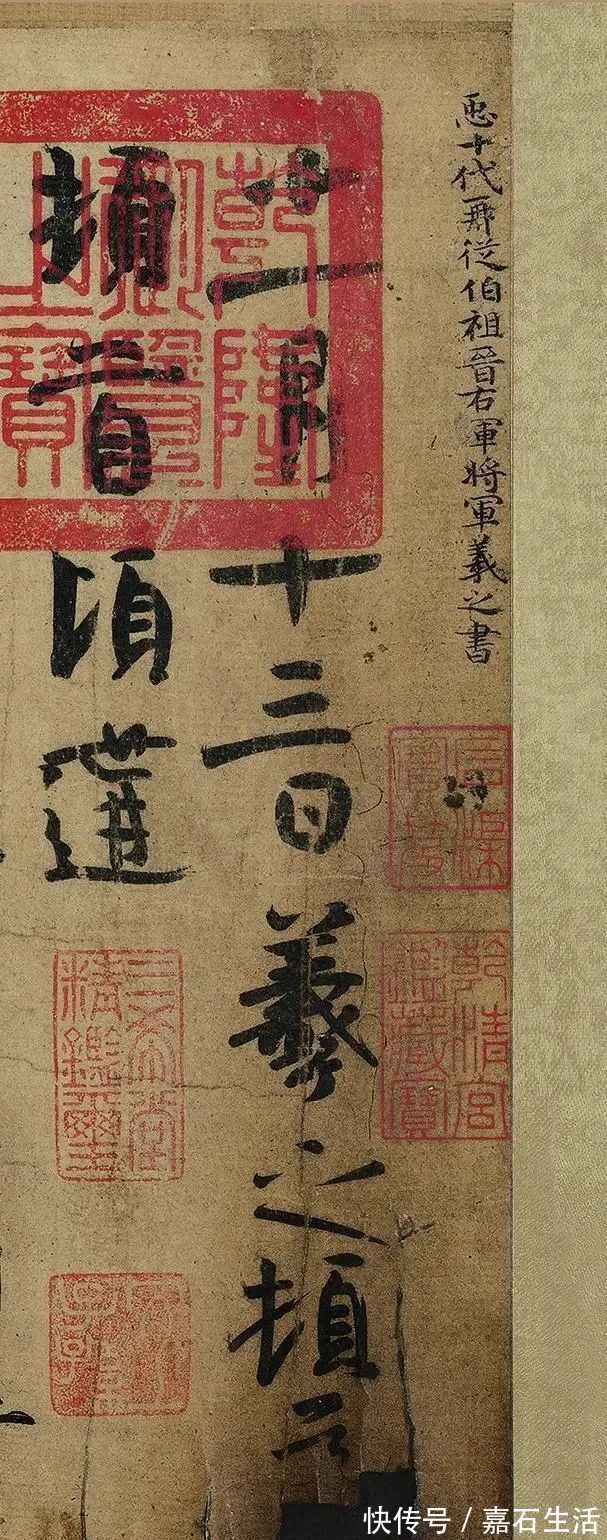 𢘑十代再從伯祖晉右軍將軍羲之書
十一月十三日羲之頓首
頓首頃遘
乾隆御覽之寶
乾清宮鑑藏寶
三希堂精鑑璽
宜子孫
快传号 / 嘉石生活